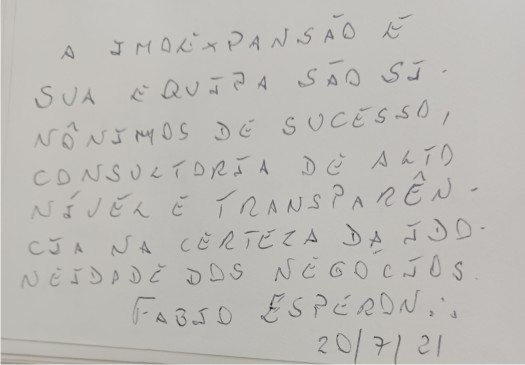 A IMOEXPANSÃO E
SUA EQUIPA SÃO SI-
NÔNIMOS DE SUCESSO,
CONSULTORIA DE ALTO
NÍVEL E TRANSPARÊN-
CIA NA CERTEZA DA IDO-
NEIDADE DOS NEGÓCIOS.
FABIO ESPERON
20/7/21